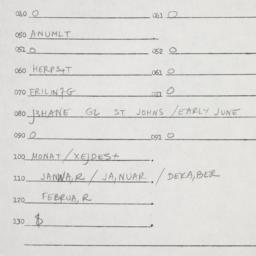 040 0 041 0
050 ANUMLT
051 0 052 0
060 HERPS+T 061 0
070 FRILINZG 0
080 J3HANE GL ST JOHNS / EARLY JUNE
090 0 091 0
100 MONAT / XEJDES+
110 JANWA,R / JA,NUAR / DEKA,BER
120 FEBRUA,R
130 $